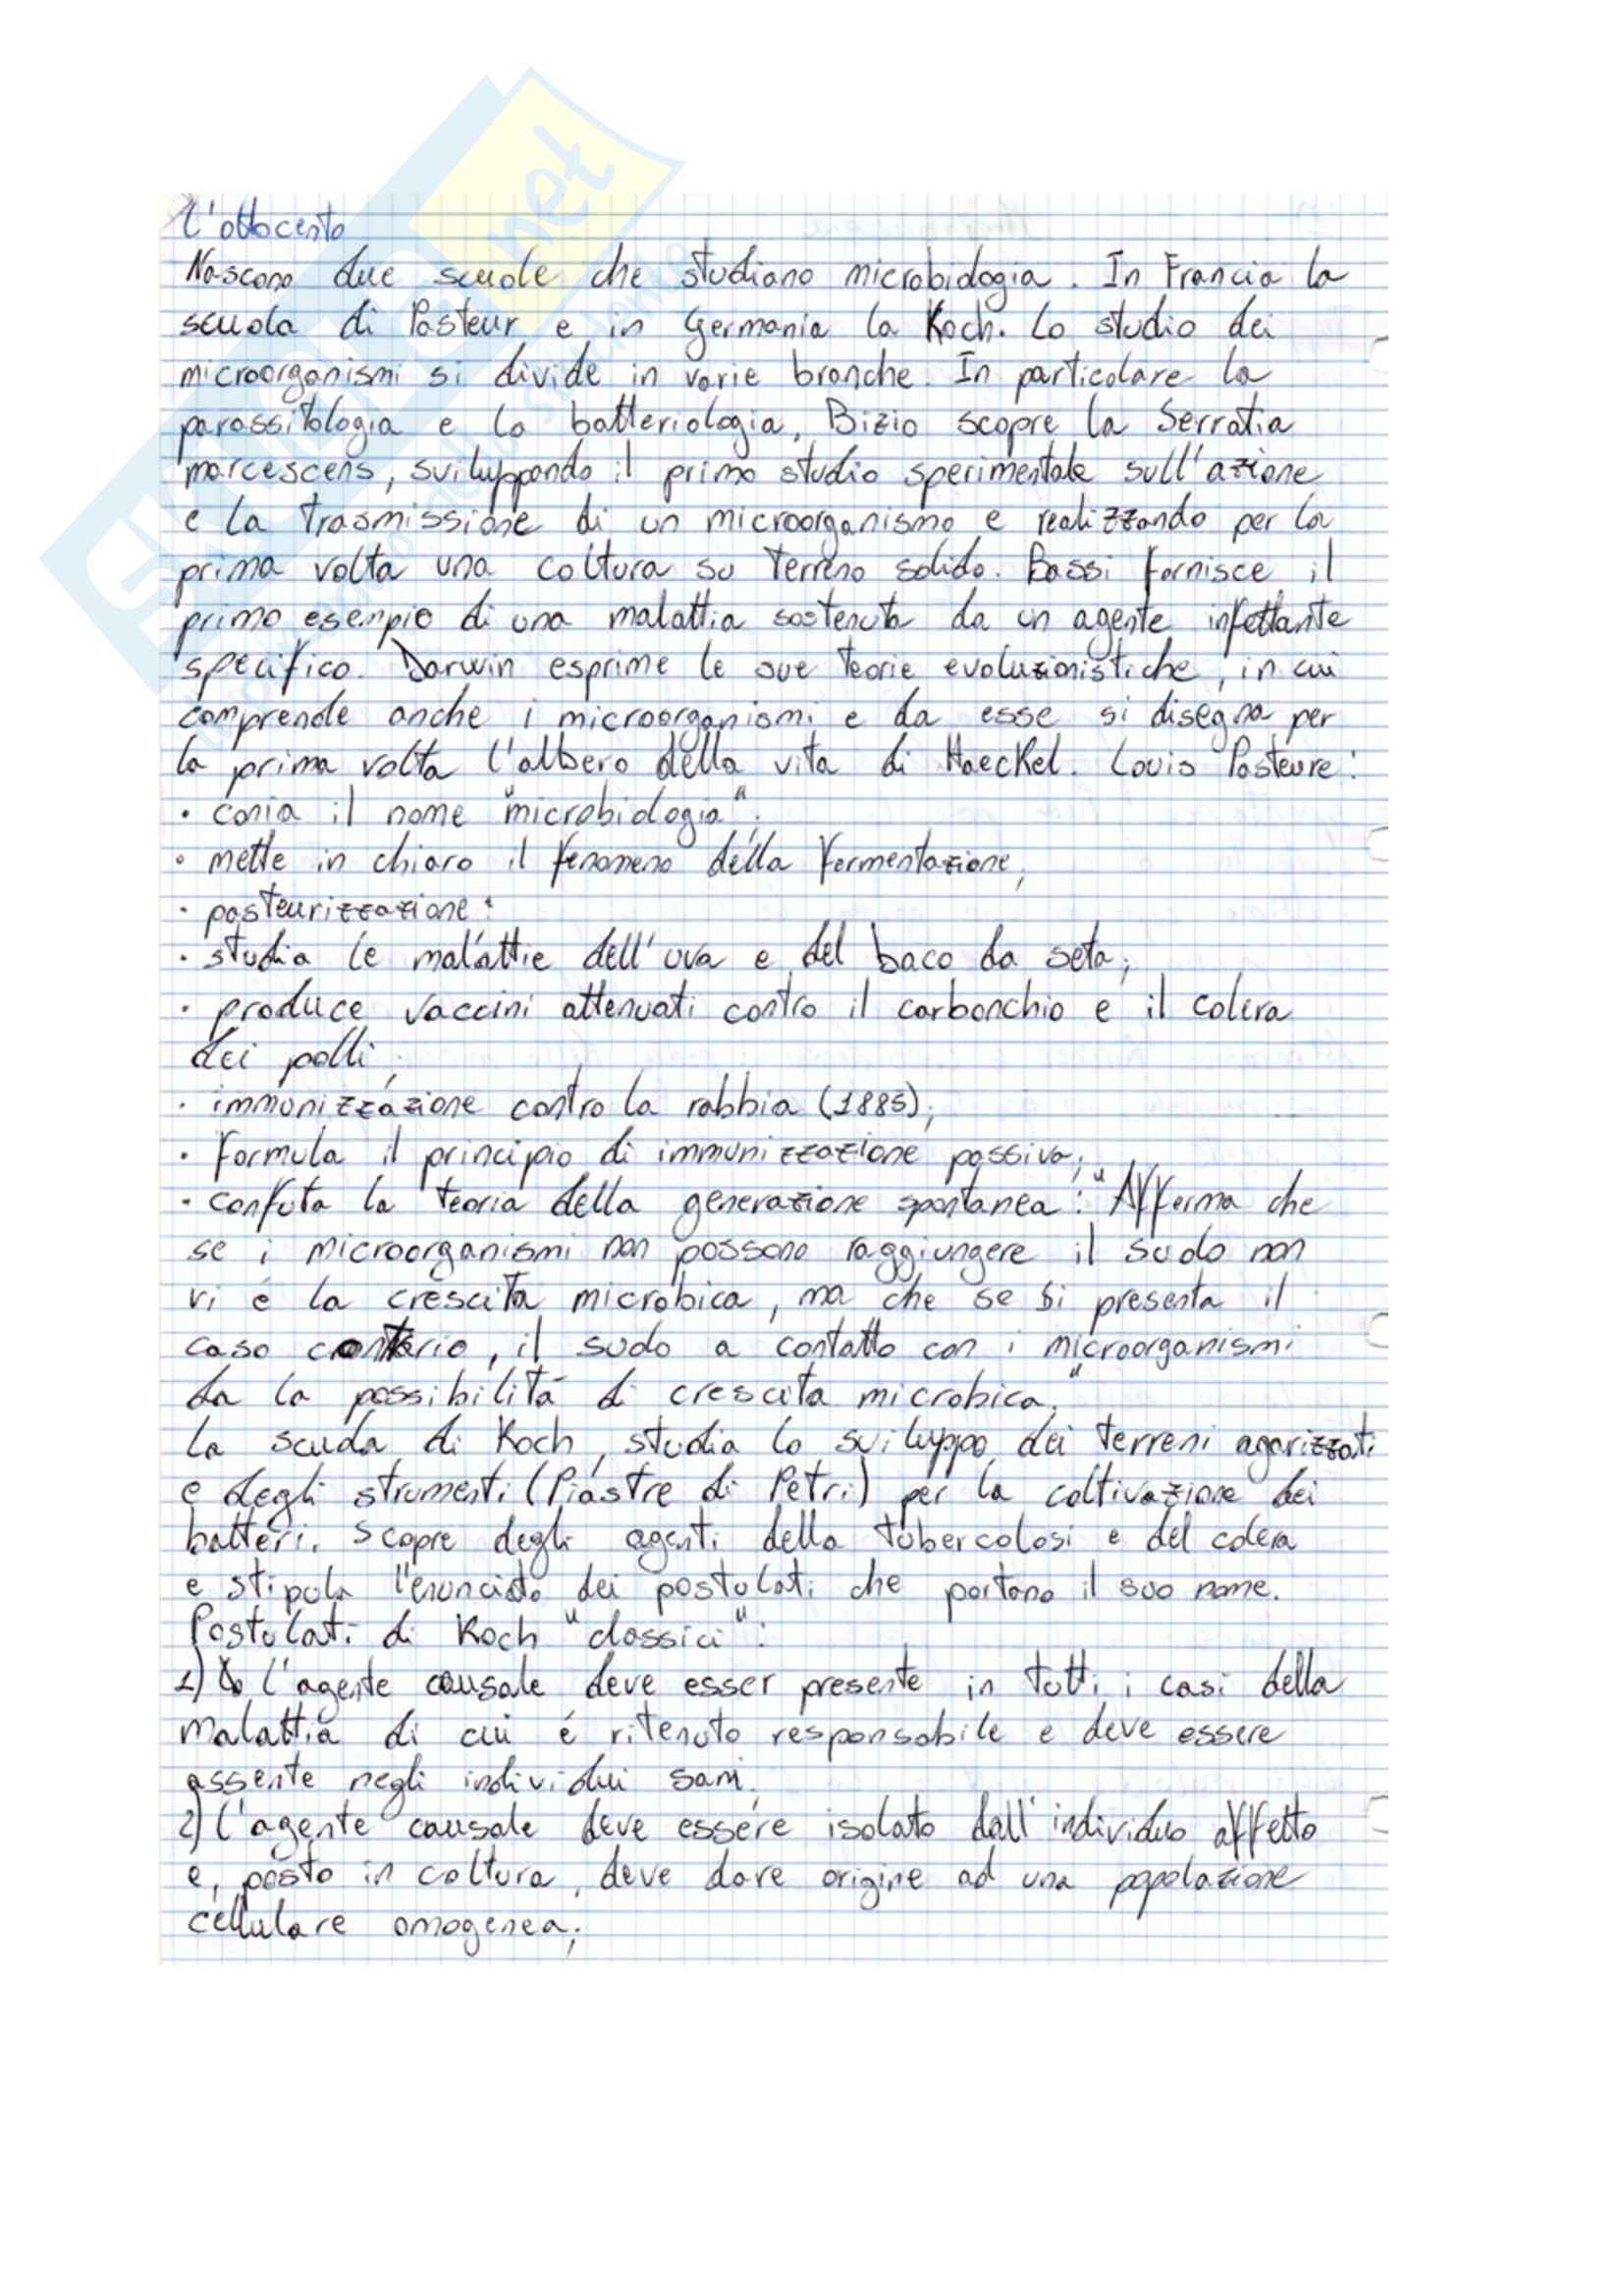 L'ottocento
Nascono due scuole che studiano microbiologia. In Francia la
scuola di Pasteur e in Germania la Koch. Lo studio dei
microorganismi si divide in varie branche. In particolare la
parassitologia e la batteriologia. Bizio scopre la Serratia
marcescens, sviluppando il primo studio sperimentale sull'azione
e la trasmissione di un microorganismo e realizzando per la
prima volta una coltura su terreno solido. Bassi fornisce il
primo esempio di una malattia sostenuta da un agente infettante
specifico. Darwin esprime le sue teorie evoluzionistiche, in cui
comprende anche i microorganismi e da esse si disegna per
la prima volta l'albero della vita di Haeckel. Louis Pasteure:
· conia il nome "microbiologia";
· mette in chiaro il fenomeno della fermentazione;
· pasteurizzazione;
· studia le malattie dell'uva e del baco da seta;
· produce vaccini attenuati contro il carbonchio e il colera
dei polli;
· immunizzazione contro la rabbia (1885);
· Formula il principio di immunizzazione passiva;
· confuta la teoria della generazione spontanea: "Afferma che
se i microorganismi non possono raggiungere il suolo non
vi é la crescita microbica, ma che se si presenta il
caso contrario, il suolo a contatto con i microorganismi
da la possibilitá di crescita microbica."
La scuola di Koch, studia lo sviluppo dei terreni agarizzati
e degli strumenti (Piastre di Petri) per la coltivazione dei
batteri. Scopre degli agenti della tubercolosi e del colera
e stipula l'enunciato dei postulati che portano il suo nome.
Postulati di Koch "classici":
1) L'agente causale deve esser presente in tutti i casi della
malattia di cui é ritenuto responsabile e deve essere
assente negli individui sani.
2) L'agente causale deve essere isolato dall'individuo affetto
e, posto in coltura, deve dare origine ad una popolazione
cellulare omogenea;